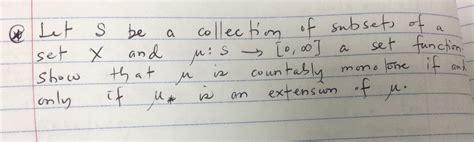 * Let S be a collection of subsets of a
set X and μ: S → [0, ∞] a set function
Show that μ is countably monotone if and
only if μ* is an extension of μ.